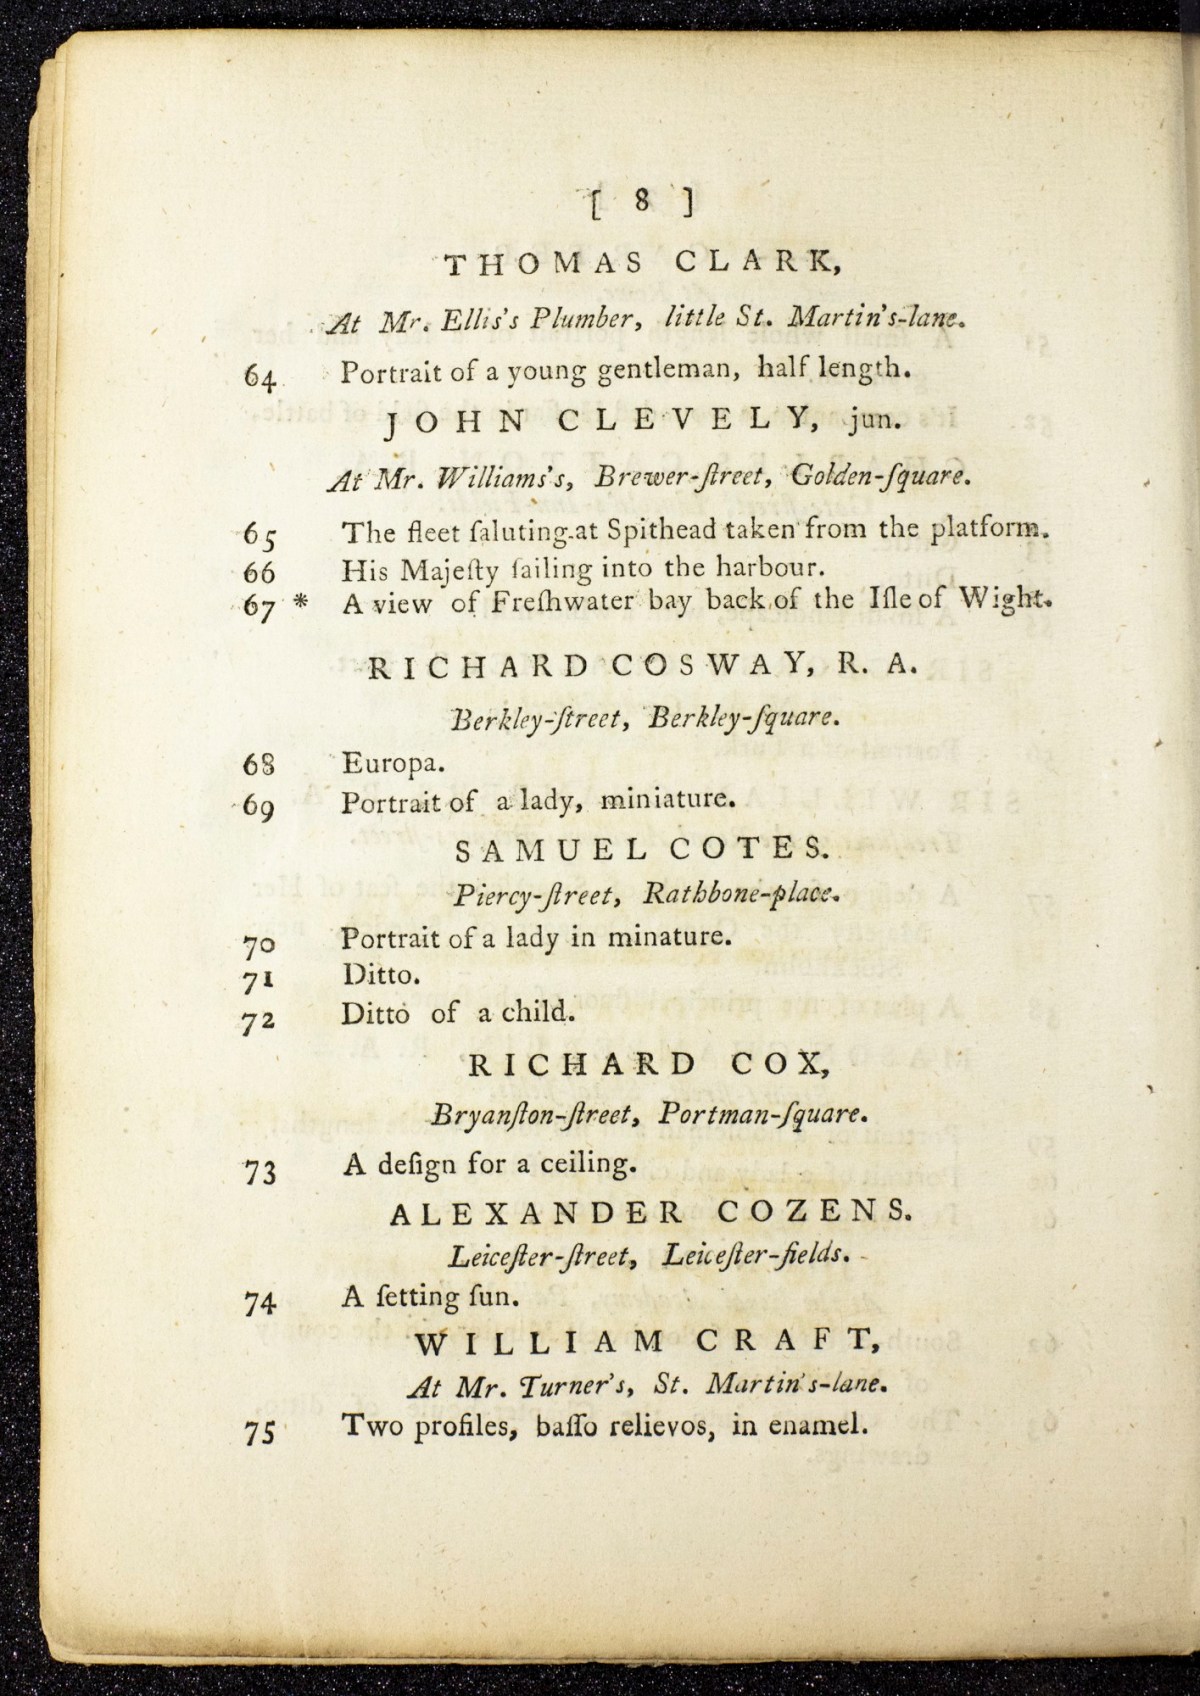 [ 8 ]
THOMAS CLARK,
At Mr. Ellis's Plumber, little St. Martin's-lane.
64 Portrait of a young gentleman, half length.
JOHN CLEVELY, jun.
At Mr. Williams's, Brewer-ſtreet, Golden-ſquare.
65 The fleet ſaluting at Spithead taken from the platform.
66 His Majeſty ſailing into the harbour.
67 * A view of Freſhwater bay back of the Iſle of Wight.
RICHARD COSWAY, R. A.
Berkley-ſtreet, Berkley-ſquare.
68 Europa.
69 Portrait of a lady, miniature.
SAMUEL COTES.
Piercy-ſtreet, Rathbone-place.
70 Portrait of a lady in minature.
71 Ditto.
72 Ditto of a child.
RICHARD COX,
Bryanſton-ſtreet, Portman-ſquare.
73 A deſign for a ceiling.
ALEXANDER COZENS.
Leiceſter-ſtreet, Leiceſter-fields.
74 A ſetting ſun.
WILLIAM CRAFT,
At Mr. Turner's, St. Martin's-lane.
75 Two profiles, baſſo relievos, in enamel.